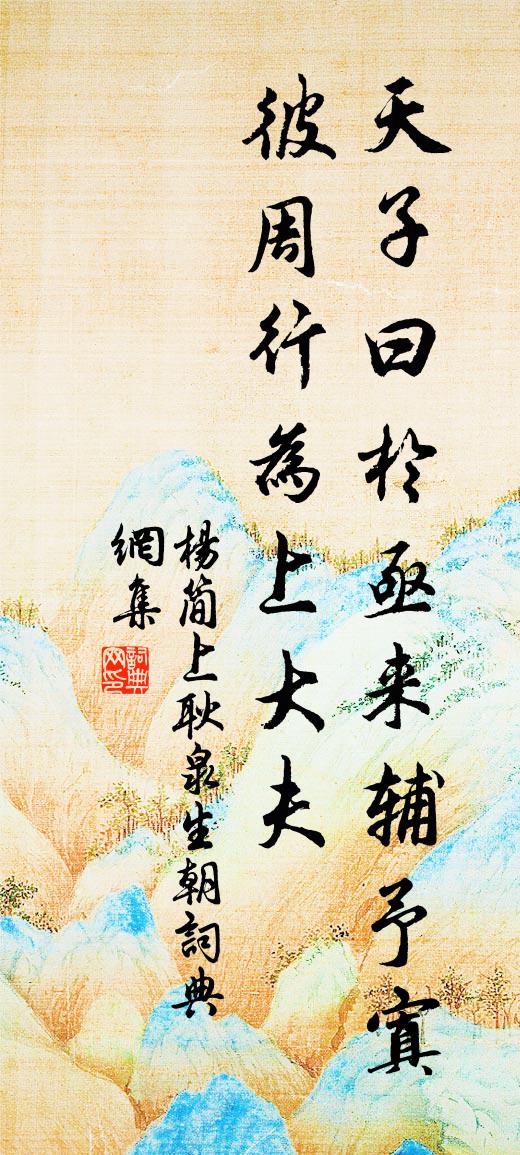 天子曰於亟来辅予寘
彼周行為上大夫
楊简上耿泉生朝詞典
網集
詞典
网印